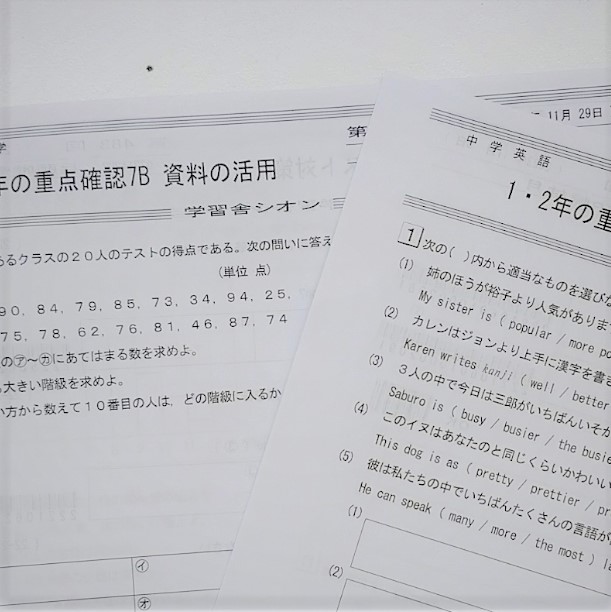 学
第
年の重点確認7B 資料の活用
学習舎シオン
あるクラスの20人のテストの得点である。次の問いに答え
(単位 点)
90, 84, 79, 85, 73, 34, 94, 25,
75, 78, 62, 76, 81, 46, 87, 74
の㋐～㋕にあてはまる数を求めよ。
も大きい階級を求めよ。
い方から数えて10番目の人は、どの階級に入るか
㋑
㋔
11月 29日
中学英語
1・2年の重
1 次の( )内から適当なものを選びな
(1) 姉のほうが裕子より人気がありま
My sister is ( popular / more po
(2) カレンはジョンより上手に漢字を書き
Karen writes kanji ( well / better
(3) 3人の中で今日は三郎がいちばんいそが
Saburo is ( busy / busier / the busie
(4) このイヌはあなたのと同じくらいかわいい
This dog is as ( pretty / prettier / pr
(5) 彼は私たちの中でいちばんたくさんの言語が
He can speak ( many / more / the most ) la
(1)
(2)